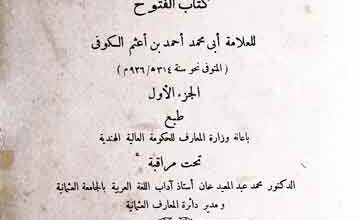 كتاب الفتوح
للعلامة أبي محمد أحمد بن أعثم الكوفى
(المتوفى نحو سنة ٣١٤ھ/٩٢٦م)
الجزء الأول
طبع
باعانة وزارة المعارف للحكومة العالية الهندية
تحت مراقبة
الدكتور محمد عبد المعيد خان أستاذ آداب اللغة العربية بالجامعة العثمانية
و مدير دائرة المعارف العثمانية